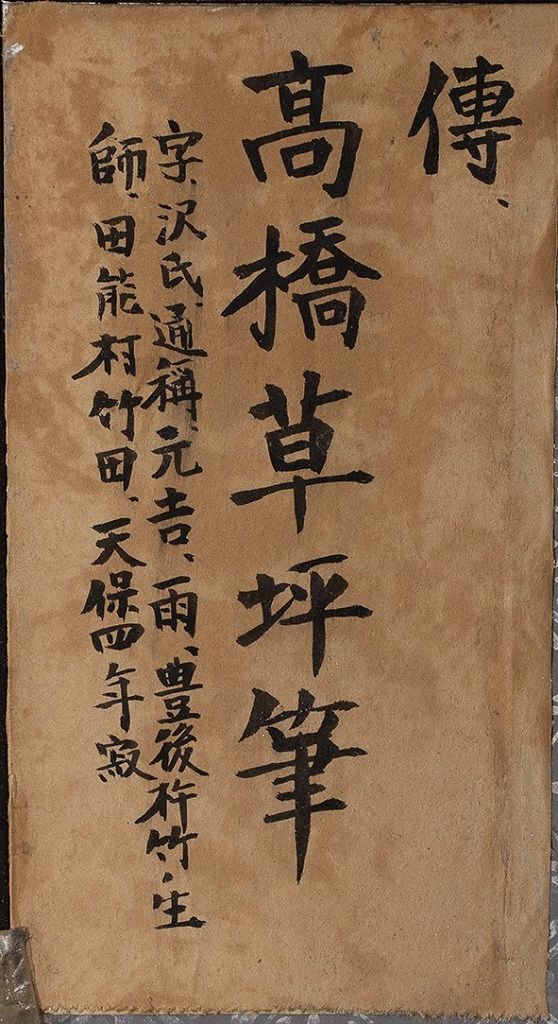 傳、
髙橋草坪筆
字、沢氏、通稱、元吉、雨、豊後杵竹、生
師、田能村竹田、天保四年寂